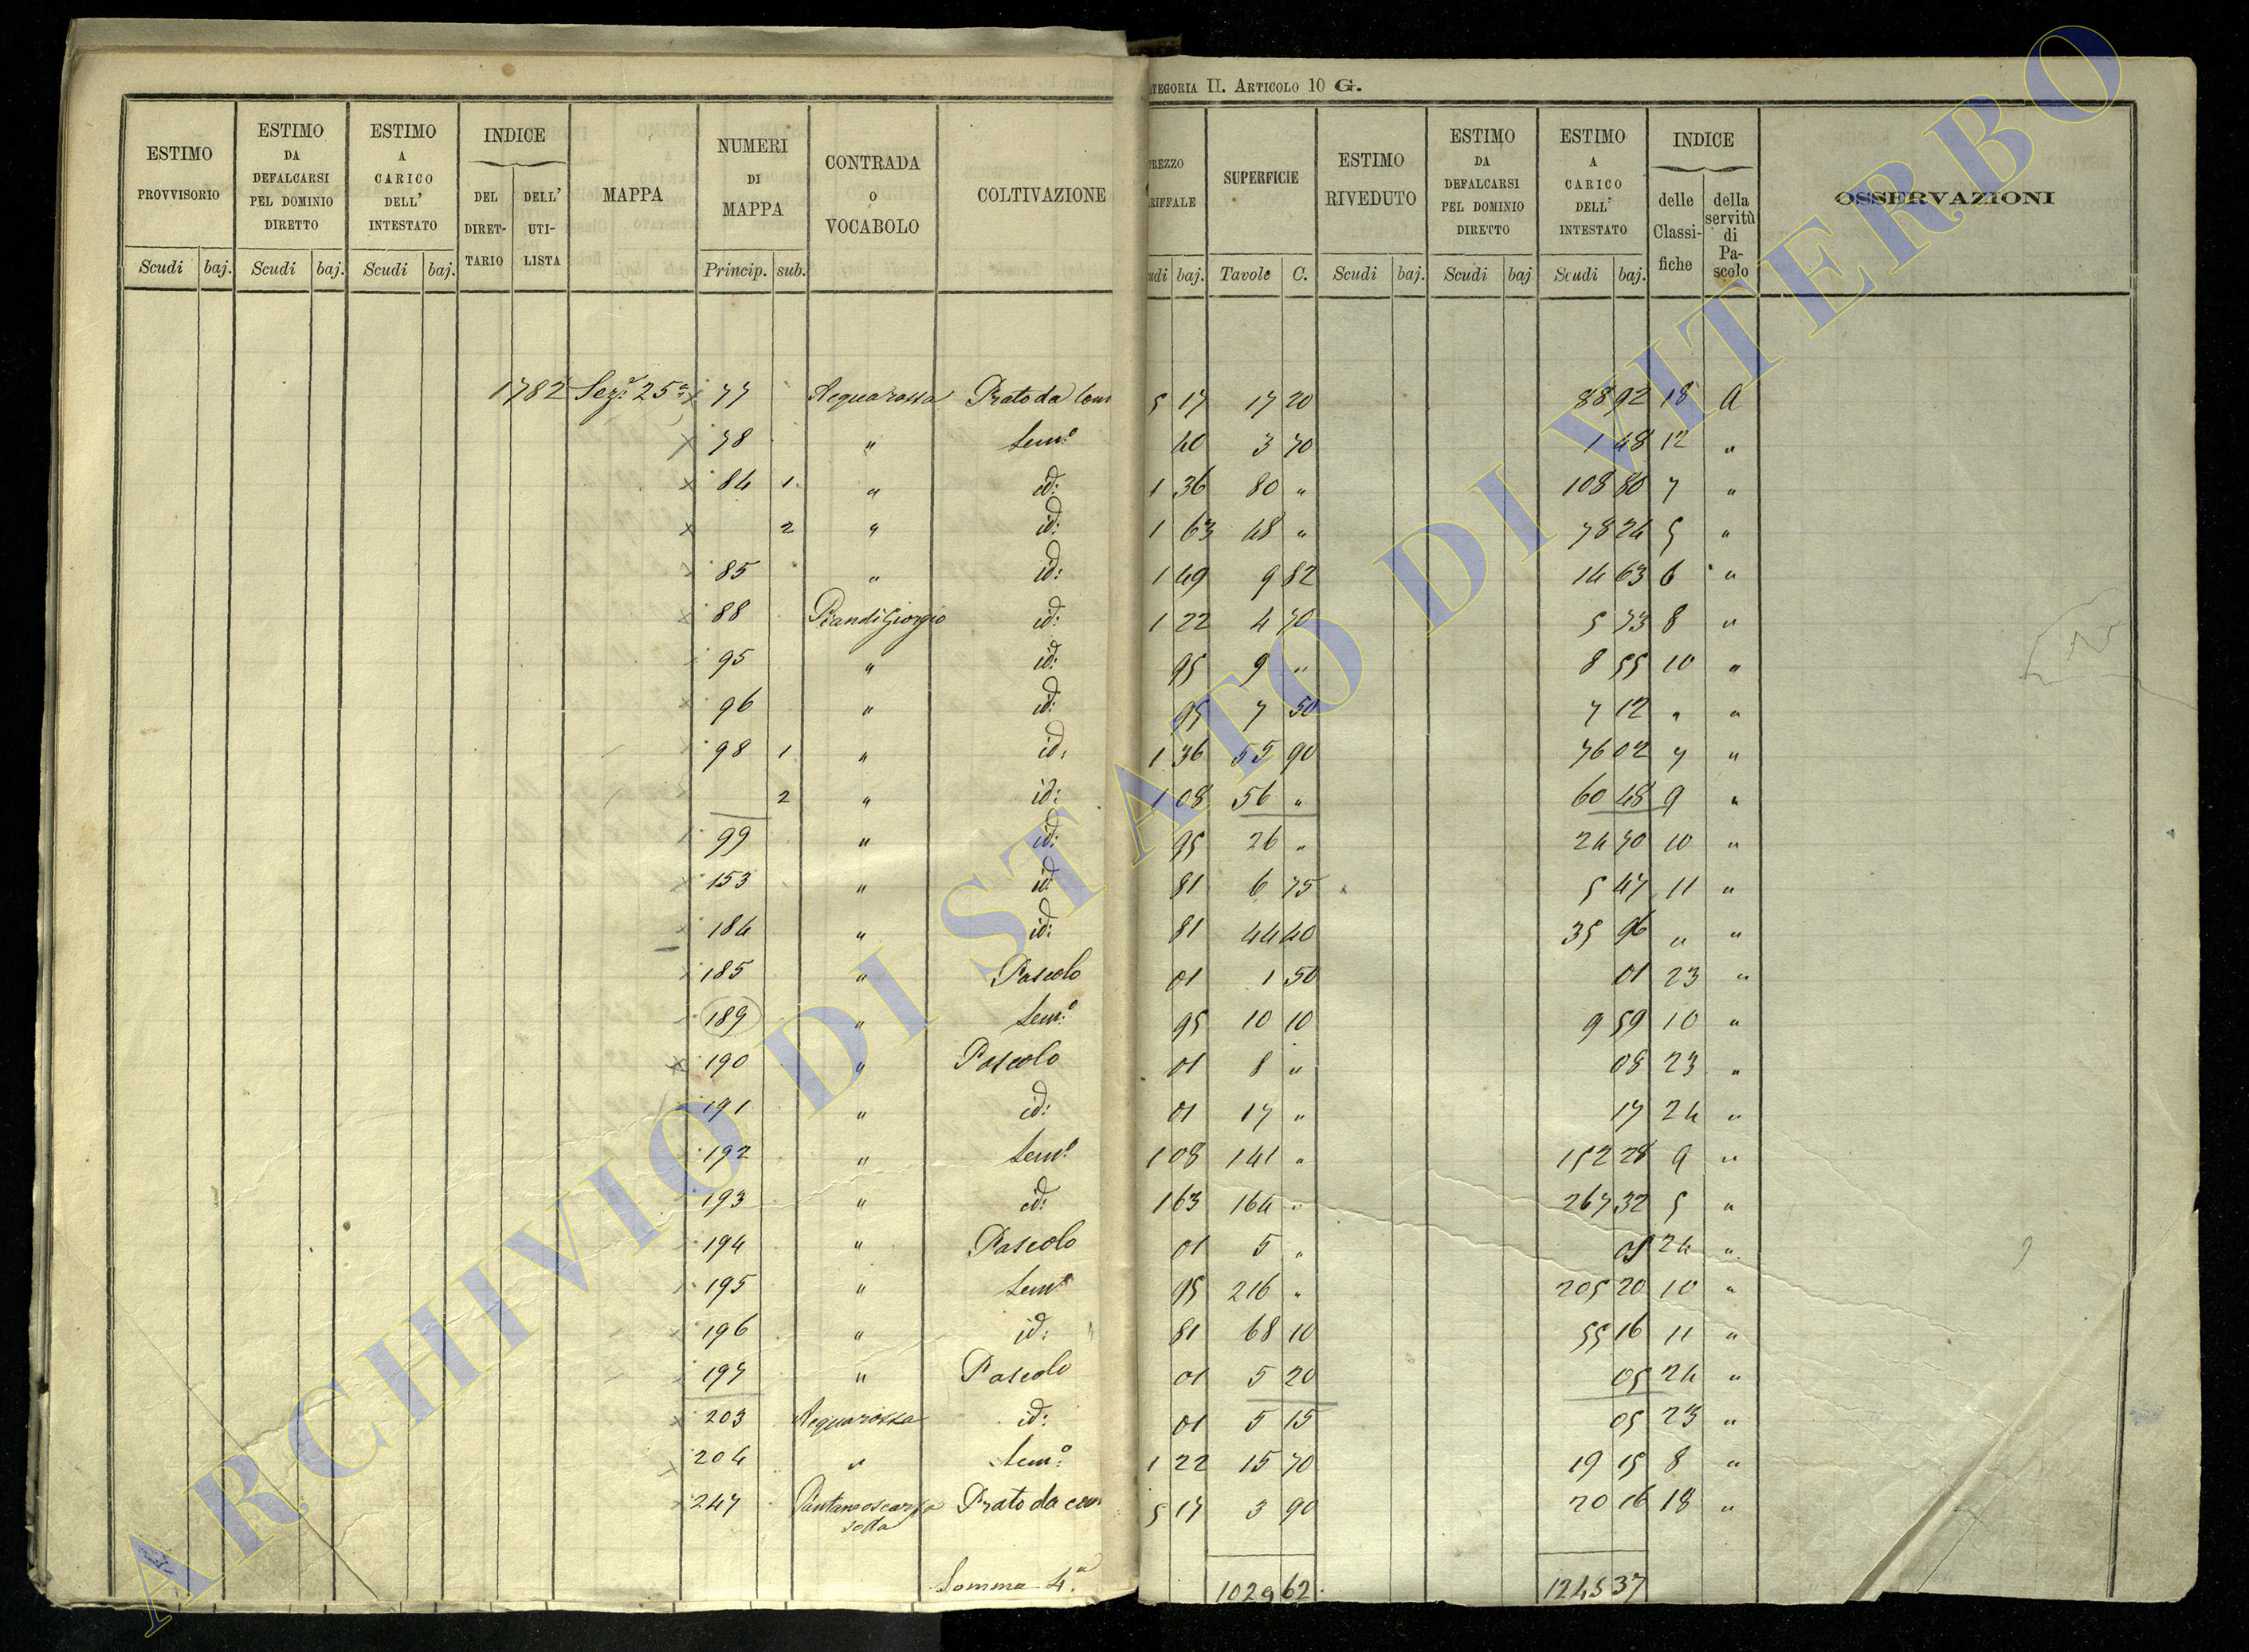 ATEGORIA II. ARTICOLO 10 G.
ESTIMO PROVVISORIO | ESTIMO DA DEFALCARSI PEL DOMINIO DIRETTO | ESTIMO A CARICO DELL' INTESTATO | INDICE DEL DIRET-TARIO | DELL' UTI-LISTA | MAPPA | NUMERI DI MAPPA | CONTRADA o VOCABOLO | COLTIVAZIONE | REZZO RIFFALE | SUPERFICIE | ESTIMO RIVEDUTO | ESTIMO DA DEFALCARSI PEL DOMINIO DIRETTO | ESTIMO A CARICO DELL' INTESTATO | INDICE delle Classi-fiche | della servitù di Pa-scolo | OSSERVAZIONI
Scudi baj. Scudi baj. Scudi baj. Princip. sub. udi baj. Tavole C. Scudi baj. Scudi baj Scudi baj.
1782 Sez.e 25a x 77 Acquarossa Prato da com 5 17 17 20 88 92 18 a
x 78 " Sem.o 40 3 70 1 48 12 "
x 84 1 " id: 1 36 80 " 108 80 7 "
x 2 " id: 1 63 48 " 78 24 5 "
x 85 " id: 1 49 9 82 14 63 6 "
x 88 Piandigiorgio id: 1 22 4 70 5 73 8 "
95 " id: 95 9 " 8 55 10 "
x 96 " id: 95 7 50 7 12 " "
x 98 1 " id: 1 36 55 90 76 02 7 "
x 2 " id: 1 08 56 " 60 48 9 "
99 " id: 95 26 " 24 70 10 "
x 153 " id 81 6 75 5 47 11 "
x 184 " id: 81 44 40 35 96 " "
x 185 " Pascolo 01 1 50 01 23 "
189 " Sem.o 95 10 10 9 59 10 "
x 190 " Pascolo 01 8 " 08 23 "
191 " id: 01 17 " 17 24 "
192 " Sem.o 1 08 141 " 152 28 9 "
193 " id: 1 63 164 " 267 32 5 "
194 " Pascolo 01 5 " 05 24 "
195 " Sem.o 95 216 " 205 20 10 "
x 196 " id: 81 68 10 55 16 11 "
197 " Pascolo 01 5 20 05 24 "
x 203 Acquarossa id: 01 5 15 05 23 "
x 204 " Sem.o 1 22 15 70 19 15 8 "
x 247 Prato da com 5 17 3 90 20 16 18 "
Somma 4.a 1029 62 1245 37
ARCHIVIO DI STATO DI VITERBO